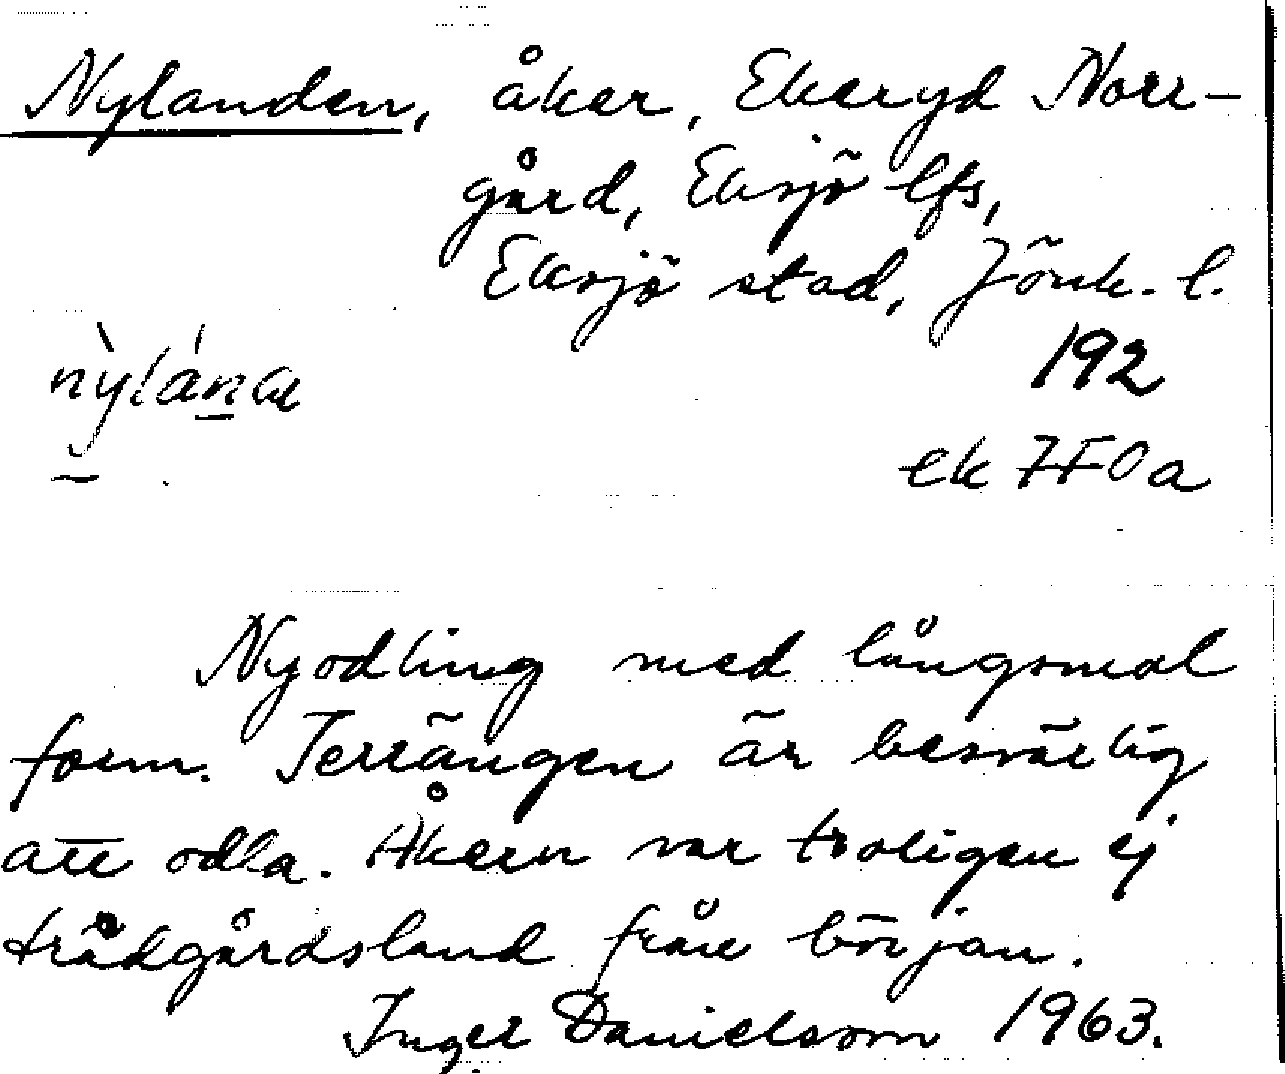 Nylanden, åker, Ekeryd Norr-
gård, Eksjö lfs,
Eksjö stad, Jönk. l.
192
ek 7F0a
Nyodling med långsmal
form. Terrängen är besvärlig
att odla. Åkern var troligen ej
trädgårdsland från början.
Inger Danielsson 1963.